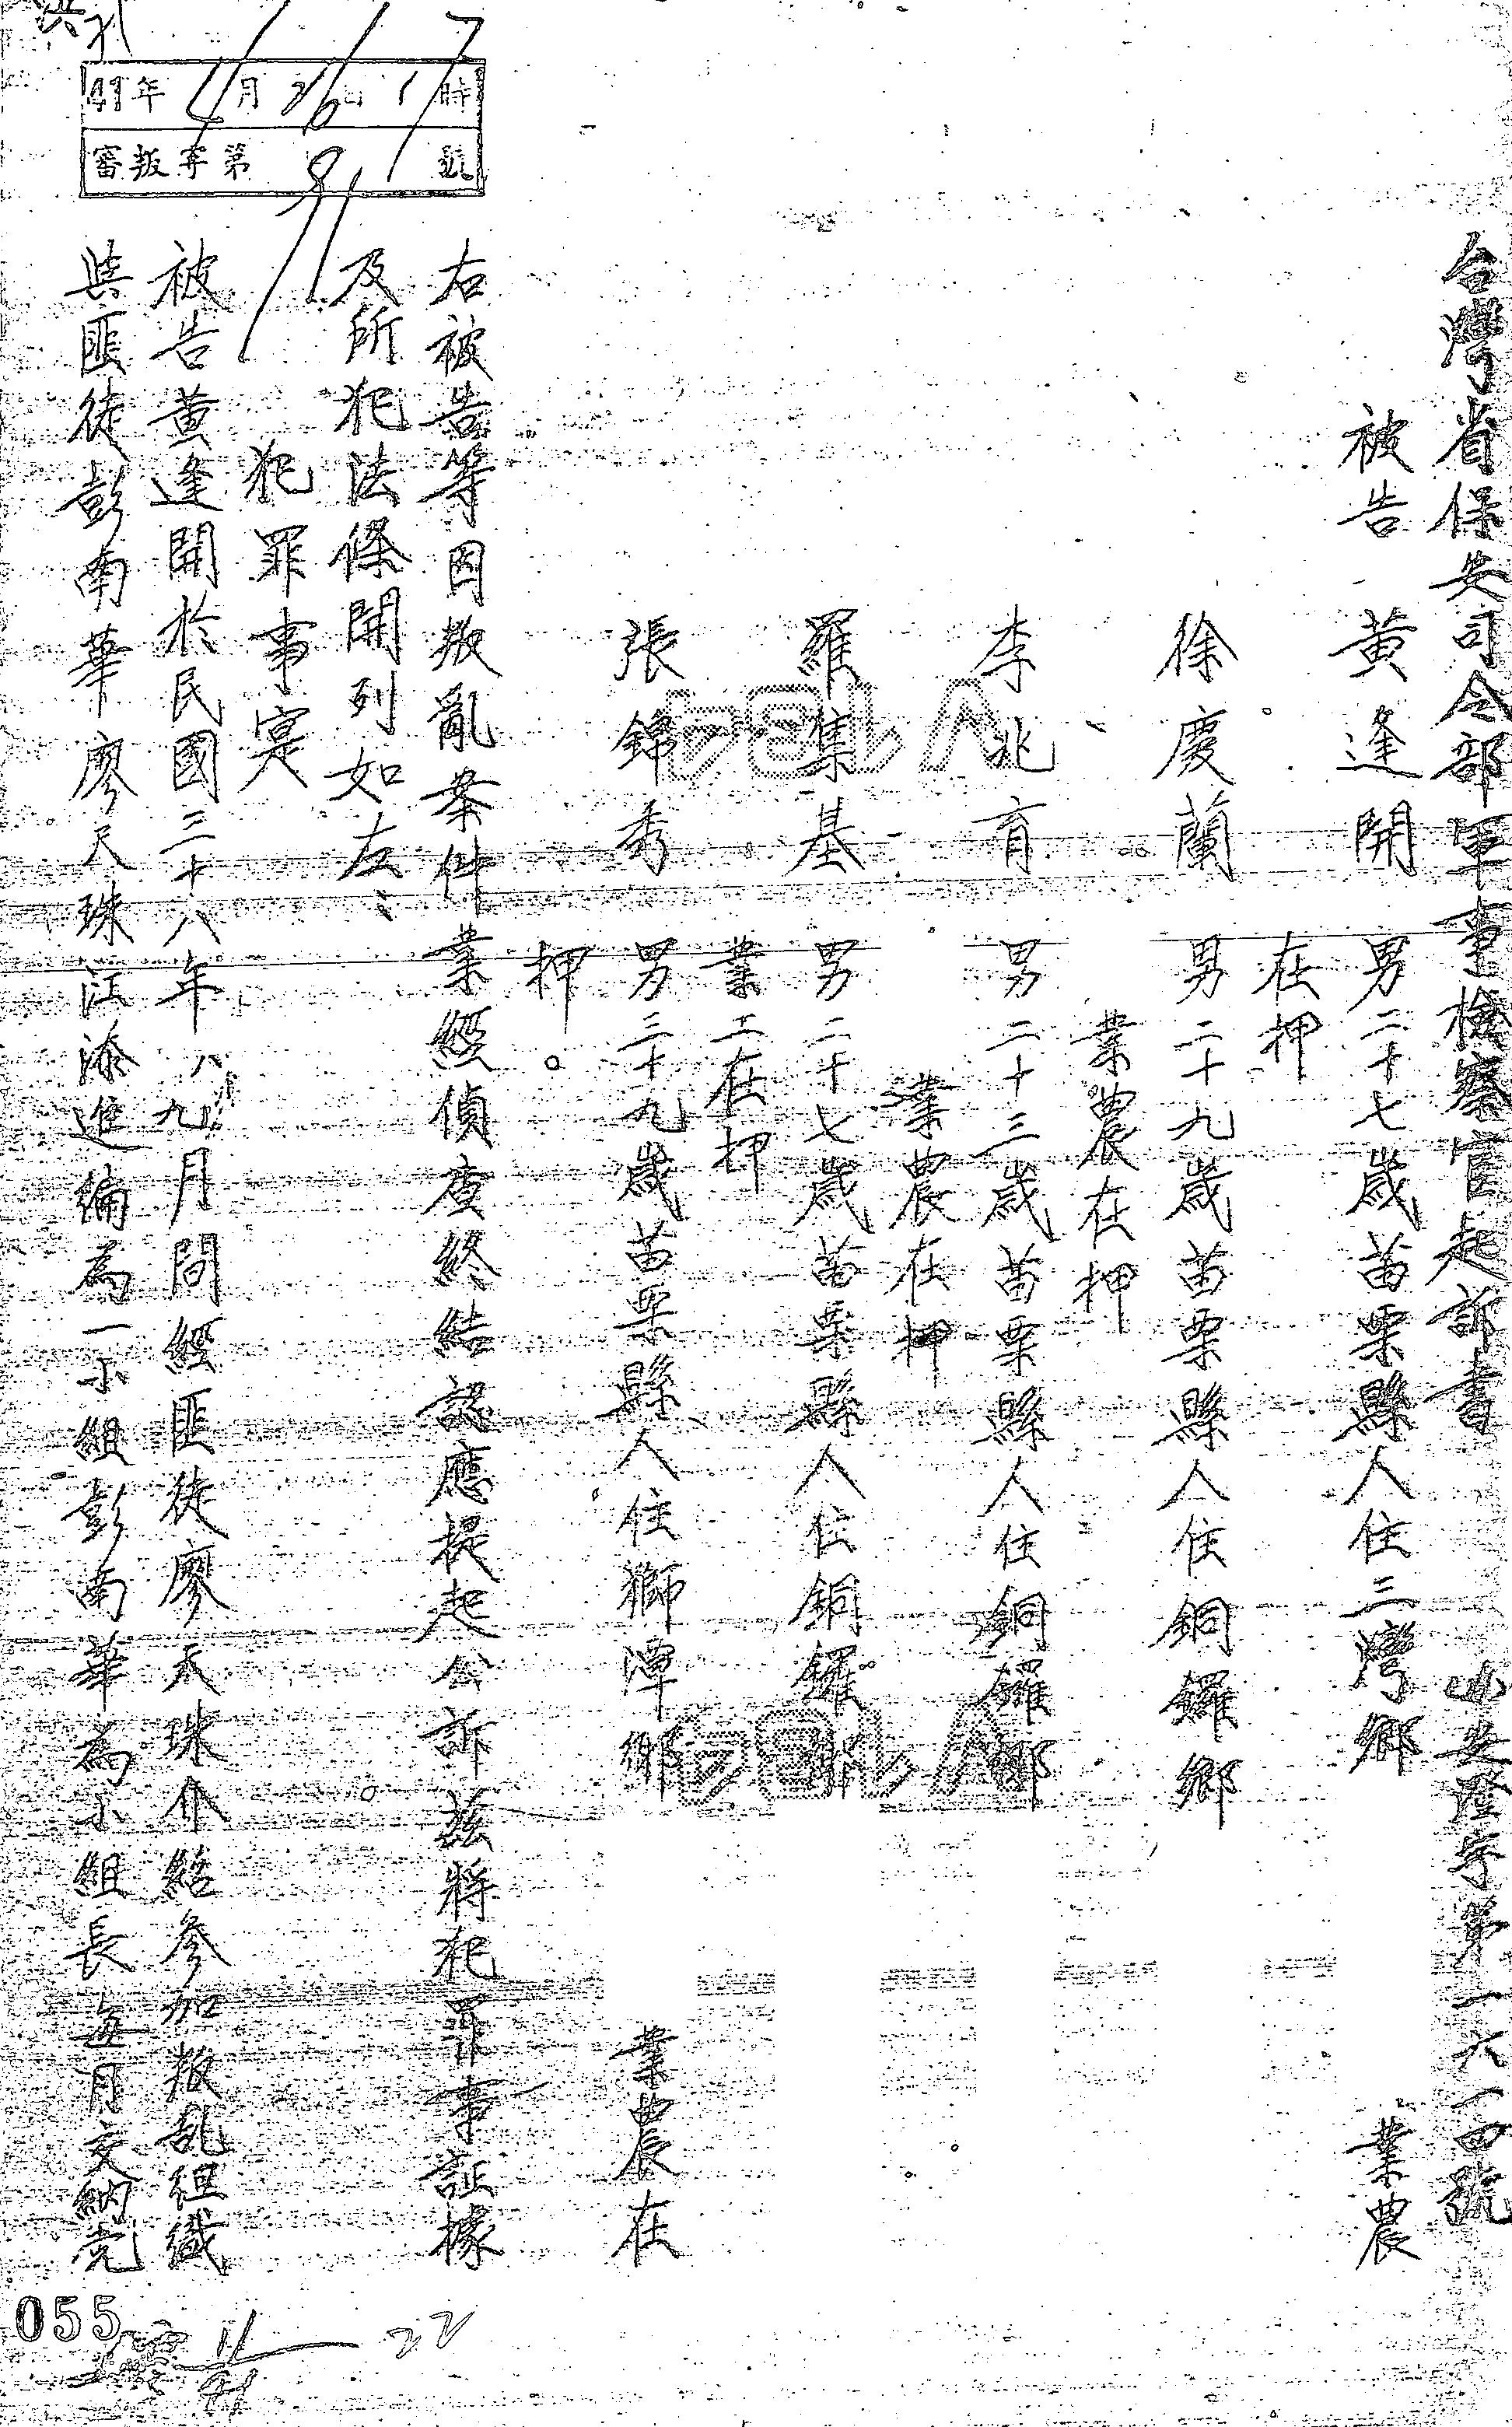 台灣省保安司令部軍事檢察官起訴書 安澄字第一六一四號
被告 黃逢開 男二十七歲苗栗縣人住三灣鄉 業農
在押
徐慶蘭 男二十九歲苗栗縣人住銅鑼鄉
業農在押
李兆育 男二十三歲苗栗縣人住銅鑼鄉
業農在押
羅集基 男二十七歲苗栗縣人住銅鑼鄉
業工在押
張錦秀 男三十九歲苗栗縣人住獅潭鄉 業農在
押。
右被告等因叛亂案件業經偵查終結認應提起公訴茲將犯罪事証據
及所犯法條開列如左:
犯罪事実
被告黃逢開於民國三十八年八九月間經匪徒廖天珠介紹參加叛乱組織
與匪徒彭南華廖天珠江添進編為一小組彭南華為小組長每月交納党
41年 月26日17時
審叛字第 號
055